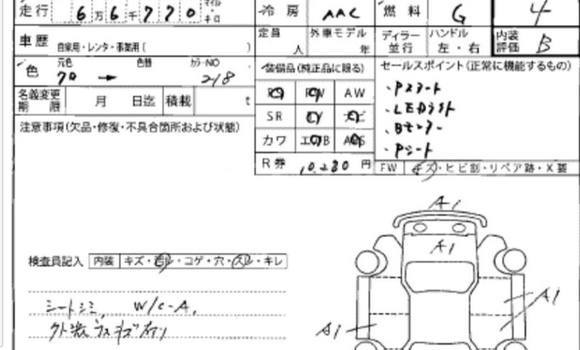 走行 6万6千770 マイル・キロ 冷房 AAC 燃料 G 4
車歴 自家用・レンタ・事業用( ) 定員 人 外車モデル 年 ディーラー並行 ハンドル 左・右 内装評価 B
色 元色 70 → 色替 カラーNO 218
装備品(純正品に限る) セールスポイント(正常に機能するもの)
AW
・Pスタート
名義変更期限 月 日迄 積載 t
SR
・LEDライト
注意事項(欠品・修復・不具合箇所および状態)
カワ
・Pシート
R券 10,280円
FW キズ・ヒビ割・リペア跡・X要
A1
A1
検査員記入 内装 キズ・ヨゴレ・コゲ・穴・スレ・キレ
シートシミ、W/C-A,
A1
外装うすキズ有り
A1